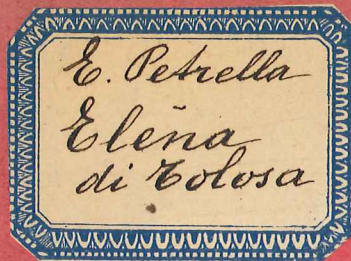 E. Petrella
Elena
di Tolosa